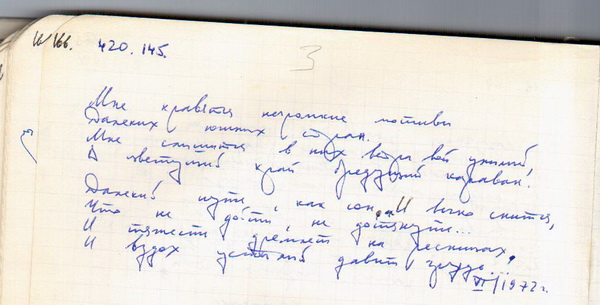 16/166. 420.145.
3
Мне нравятся негромкие мотивы
Далеких южных стран.
Мне слышится в них ветра вой унылый
В цветущий край бредущий караван.
Далекий путь, как сон, и вечно снится,
Что не дойти, не дотянуть...
И тяжесть дремлет на ресницах,
И вздох усталый давит грудь...
VI/1972г.